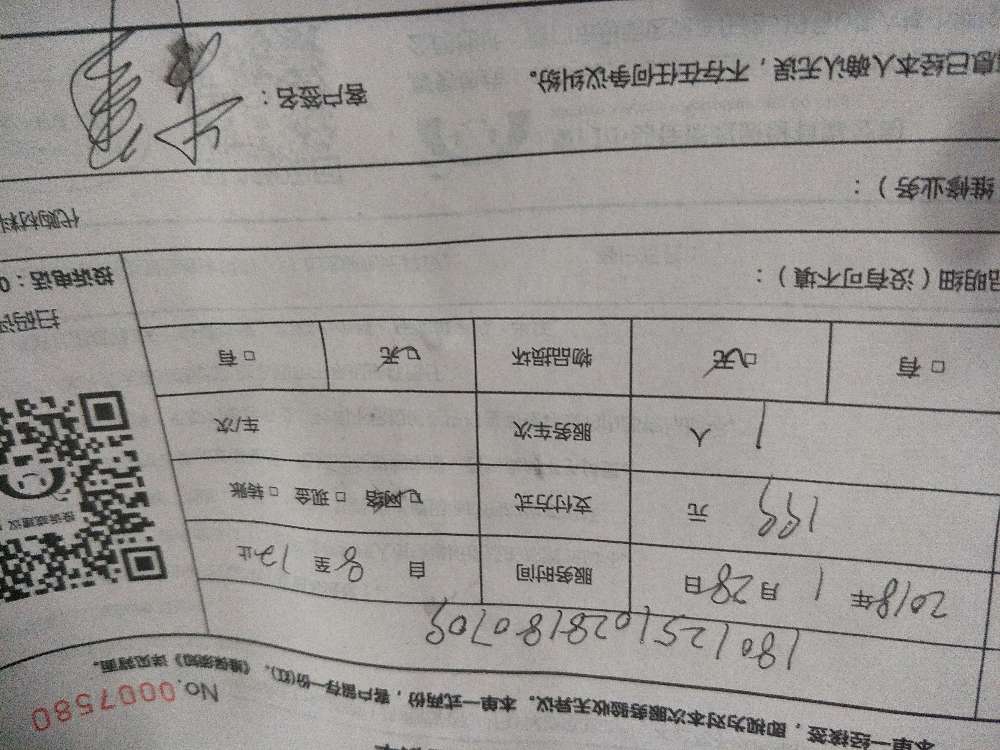 本单一经核签，即视为对本次服务验收无异议。本单一式两份，客户留存一份(红)，《维保须知》详见背面。
No.0007580
180125102818070
2018年 1 月 28 日 服务时间 自 8 至 12 止
199 元 支付方式 □网络 □现金 □转账
1 人 服务车次 车/次
□有 □无 物品损坏 □无 □有
扫码评
投诉电话：0
品明细（没有可不填）：
代购材料
维修业务）：
息已经本人确认无误，不存在任何争议纠纷。 客户签名：